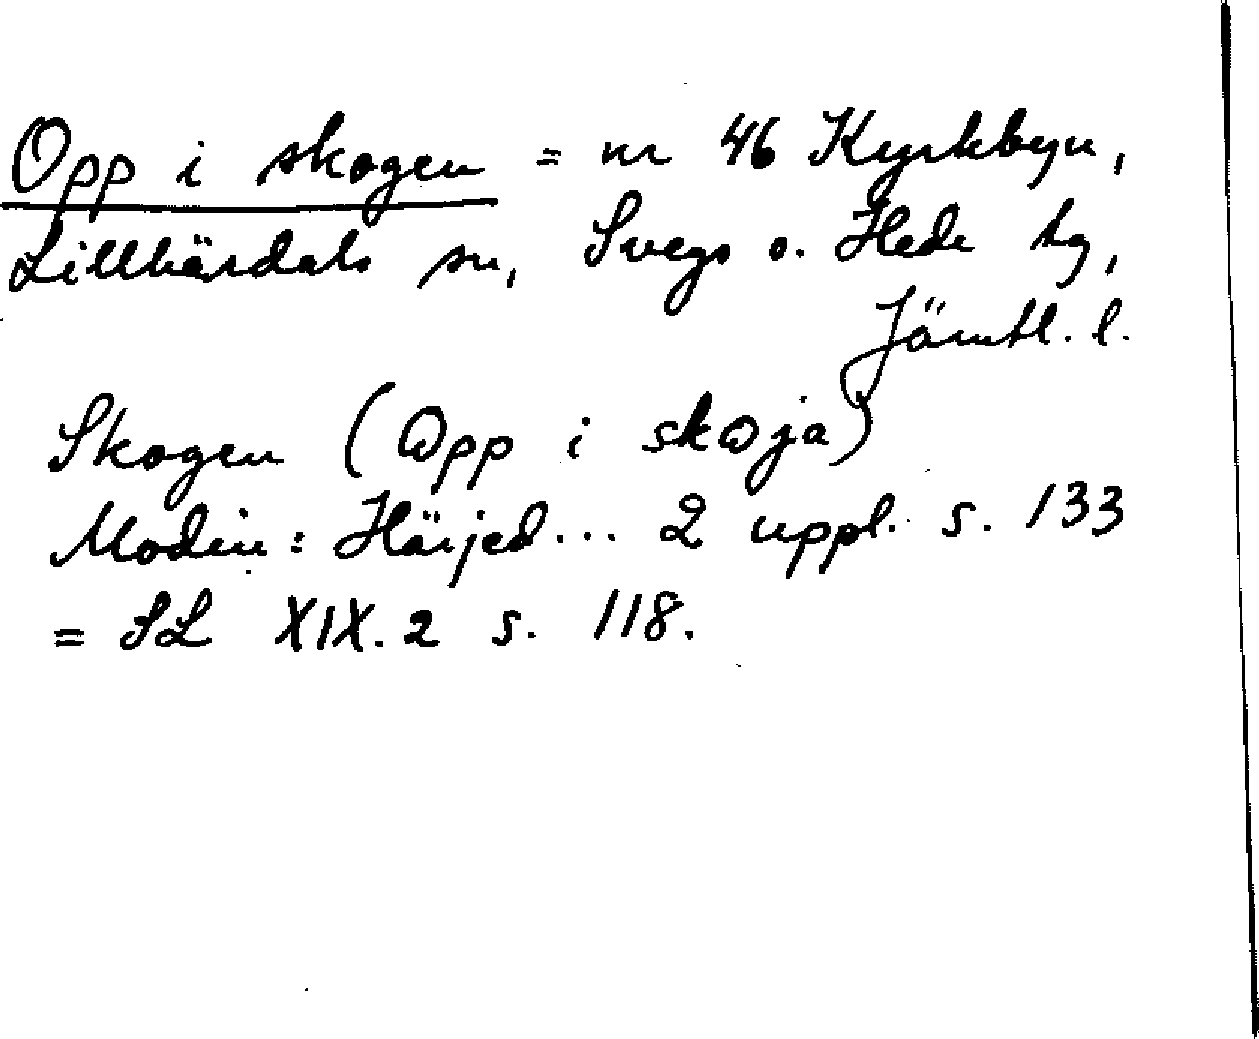 Opp i skogen = nr 46 Kyrkbyn,
Lillhärdals sn, Svegs o. Hede hg,
Jämtl. l.
Skogen (Opp i skoja)
Modin: Härjed... 2 uppl. s. 133
= SL XIX. 2 s. 118.